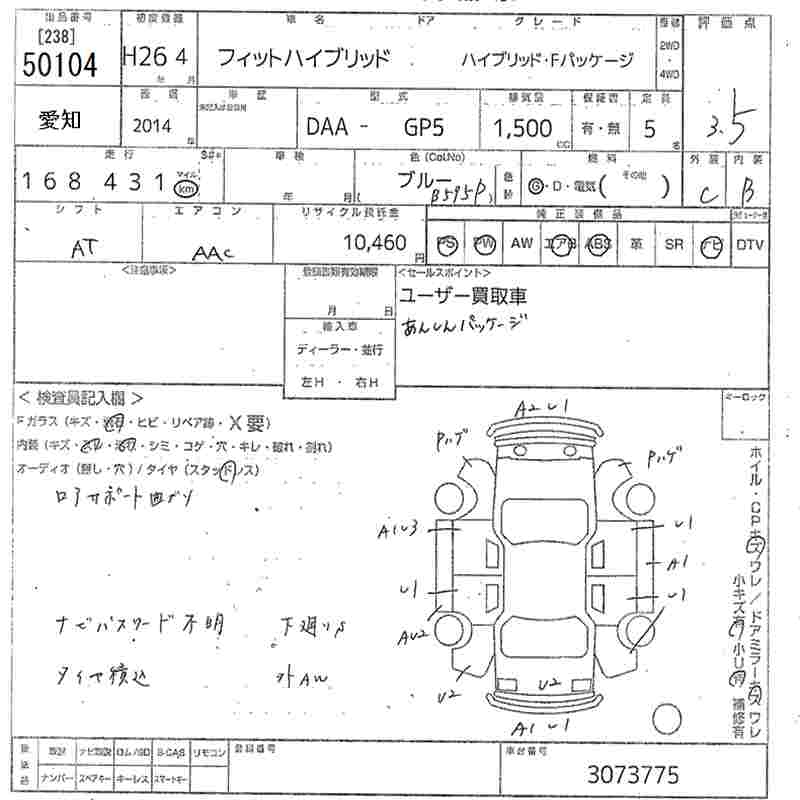 出品番号 初度登録 車名 ドア グレード 駆動 評価点
[238]
50104 H26 4 フィットハイブリッド ハイブリッド・Fパッケージ 2WD・4WD 3.5
年 月
愛知 年週 車歴 型式 排気量 保証書 定員
2014 年 DAA - GP5 1,500 CC 有・無 5 名
走行 車検 色 (Col.No) 燃料 外装 内装
168431 マイル km 年 月 ブルー B595P G・D・電気 (その他) C B
シフト エアコン リサイクル預託金 純正装備品
AT AAC 10,460 円 PS PW AW エアB ABS 革 SR ナビ DTV
<注意事項> 登録書類有効期限 <セールスポイント>
月 日 ユーザー買取車
輸入車 あんしんパッケージ
ディーラー・並行
左H ・ 右H
< 検査員記入欄 > ミーロック
Fガラス (キズ・ ・ヒビ・リペア跡・X要)
内装 (キズ・ ・ ・シミ・コゲ・穴・キレ・破れ・割れ)
オーディオ (無し・穴) / タイヤ (スタッドレス)
ロアサポート曲ガリ
ナビパスワード不明 下廻りS
タイヤ積込 外AW
A2 U1
Pハゲ Pハゲ
A1U3 U1
A1
U1 U1
AU2
U2 U2
A1 U1
ホイル・CPキズワレ / ドアミラーキズワレ
小キズ有 小U有 補修有
後送品 取説 ナビ取説 ロム/SD B-CAS リモコン 登録番号 車台番号
ナンバー スペアキー キーレス スマートキー 3073775